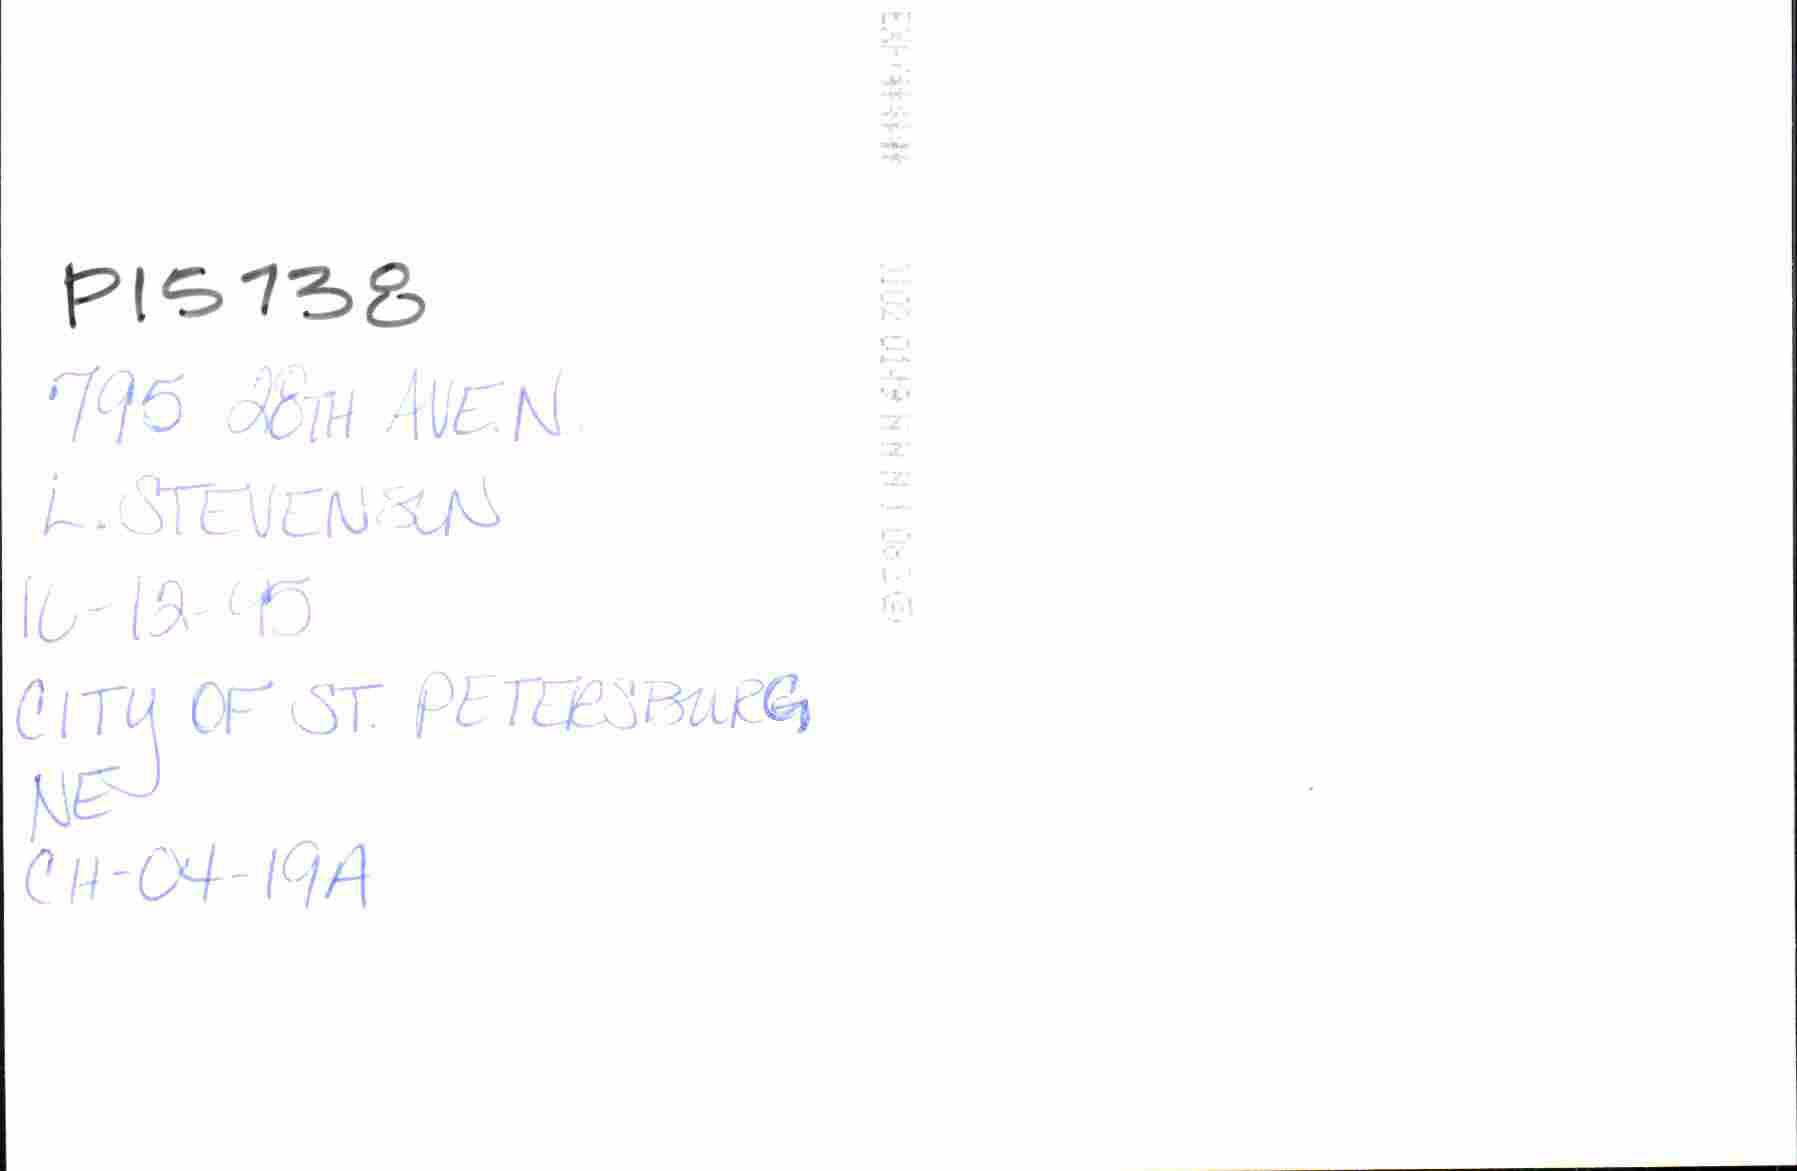 P15738
795 28TH AVE. N.
L. STEVENSON
CITY OF ST. PETERSBURG
NE
CH-04-19A